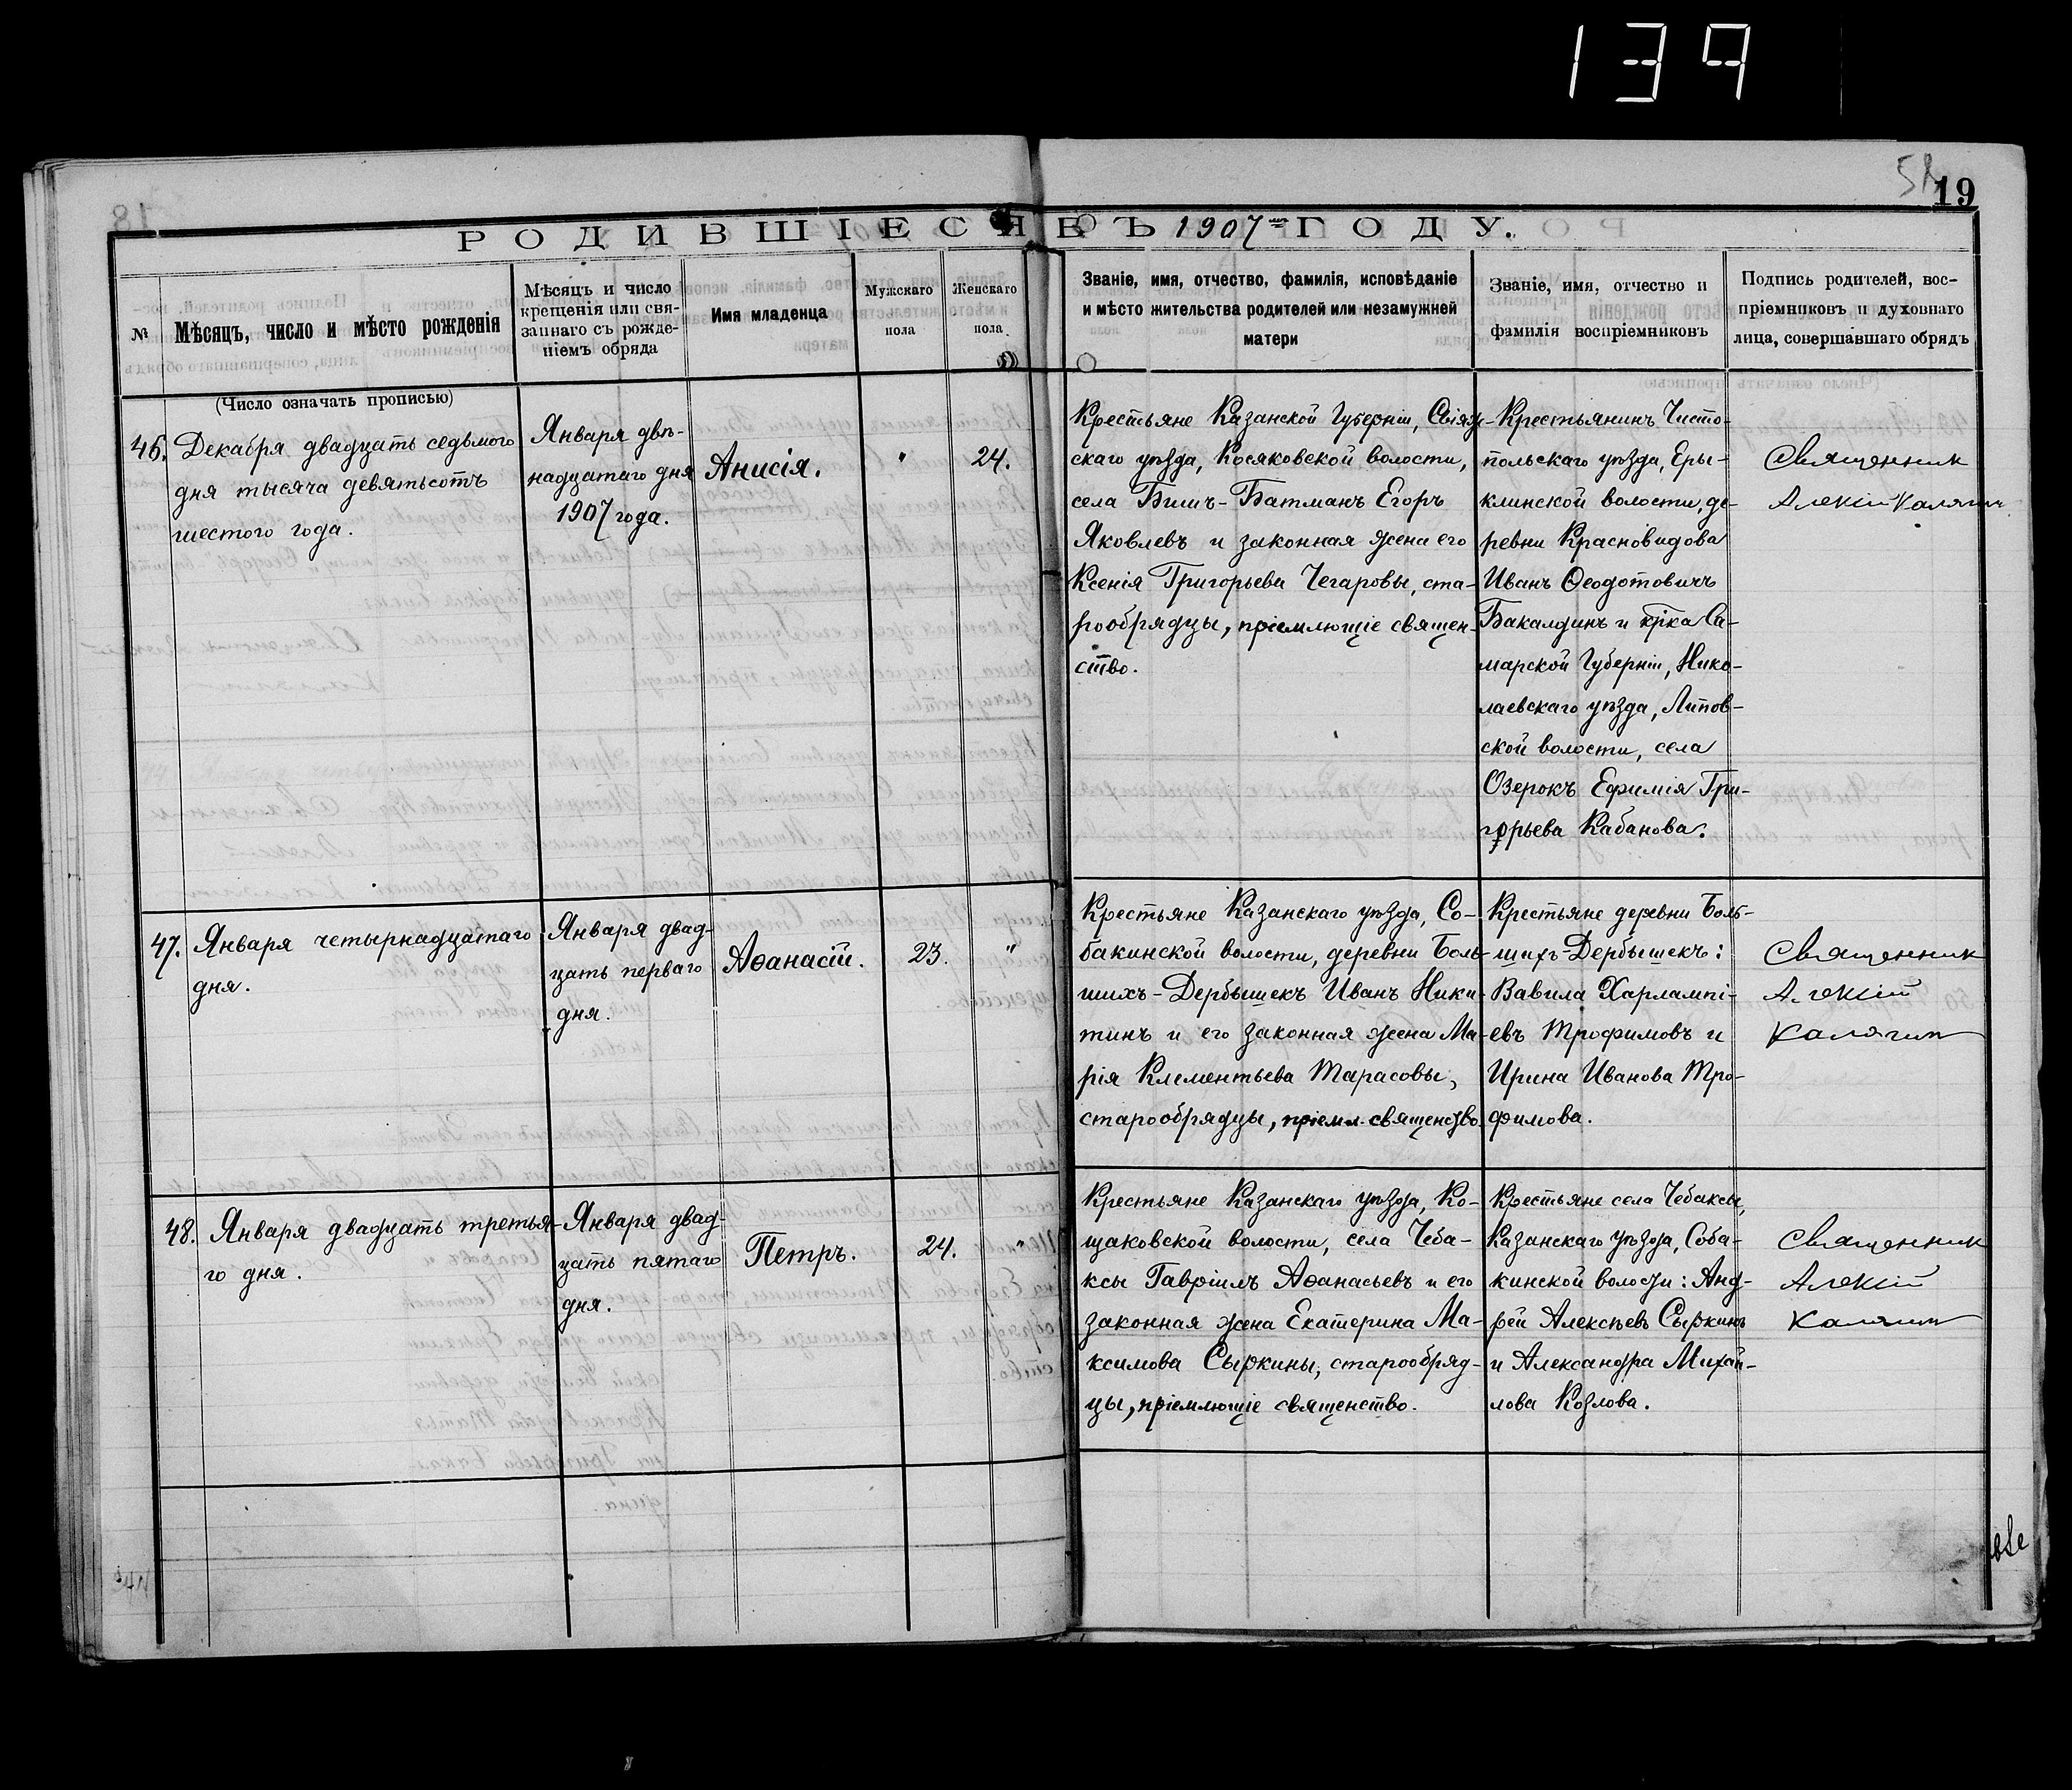 139
19
РОДИВШІЕСЯ ВЪ 1907 ГОДУ.
№
Мѣсяцъ, число и мѣсто рожденія
Мѣсяцъ и число
крещенія или свя-
заннаго съ рожде-
ніемъ обряда
Имя младенца
Мужскаго
пола
Женскаго
пола
Званіе, имя, отчество, фамилія, исповѣданіе
и мѣсто жительства родителей или незамужней
матери
Званіе, имя, отчество и
фамилія воспріемниковъ
Подпись родителей, вос-
пріемниковъ и духовнаго
лица, совершавшаго обрядъ
(Число означать прописью)
46.
Декабря двадцать седьмого
дня тысяча девятьсотъ
шестого года.
Января двѣ-
надцатаго дня
1907 года.
Анисія.
"
24.
Крестьяне Казанской Губерніи, Свіяж-
скаго уѣзда, Косяковской волости,
села Бишъ-Батманъ Егоръ
Яковлевъ и законная жена его
Ксенія Григорьева Чегаровы, ста-
рообрядцы, пріемлющіе священ-
ство.
Крестьянинъ Чисто-
польскаго уѣзда, Еры-
клинской волости, де-
ревни Красновидова
Иванъ Ѳеодотовичъ
Бакалдинъ и кр-ка Са-
марской Губерніи, Нико-
лаевскаго уѣзда, Липов-
ской волости, села
Озерокъ Ефимія Гри-
горьева Кабанова.
Священник
Алексій Калягин
47.
Января четырнадцатаго
дня.
Января двад-
цать перваго
дня.
Аѳанасій.
23.
"
Крестьяне Казанскаго уѣзда, Со-
бакинской волости, деревни Боль-
шихъ-Дербышекъ Иванъ Ники-
тинъ и его законная жена Ма-
рія Клементьева Тарасовы,
старообрядцы, пріемл. священство.
Крестьяне деревни Боль-
шихъ-Дербышекъ:
Вавила Харлампі-
евъ Трофимовъ и
Ирина Иванова Тро-
фимова.
Священник
Алексій
Калягин
48.
Января двадцать третья-
го дня.
Января двад-
цать пятаго
дня.
Петръ.
24.
"
Крестьяне Казанскаго уѣзда, Ко-
щаковской волости, села Чеба-
ксы Гавріилъ Аѳанасьевъ и его
законная жена Екатерина Ма-
ксимова Сыркины, старообряд-
цы, пріемлющіе священство.
Крестьяне села Чебаксы,
Казанскаго уѣзда, Соба-
кинской волости: Анд-
рей Алексѣевъ Сыркинъ
и Александра Михай-
лова Козлова.
Священник
Алексій
Калягин